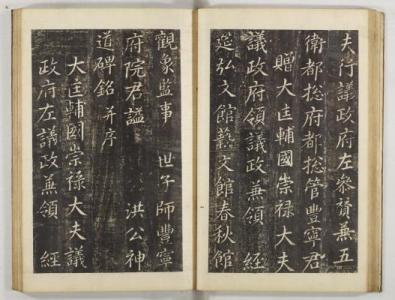 夫行議政府左參贊兼五
衛都摠府都摠管豐寧君
贈大匡輔國崇祿大夫
議政府領議政兼領 經
筵弘文館藝文館春秋館
觀象監事 世子師豐寧
府院君謚 洪公神
道碑銘 并序
大匡輔國崇祿大夫議
政府左議政兼領 經